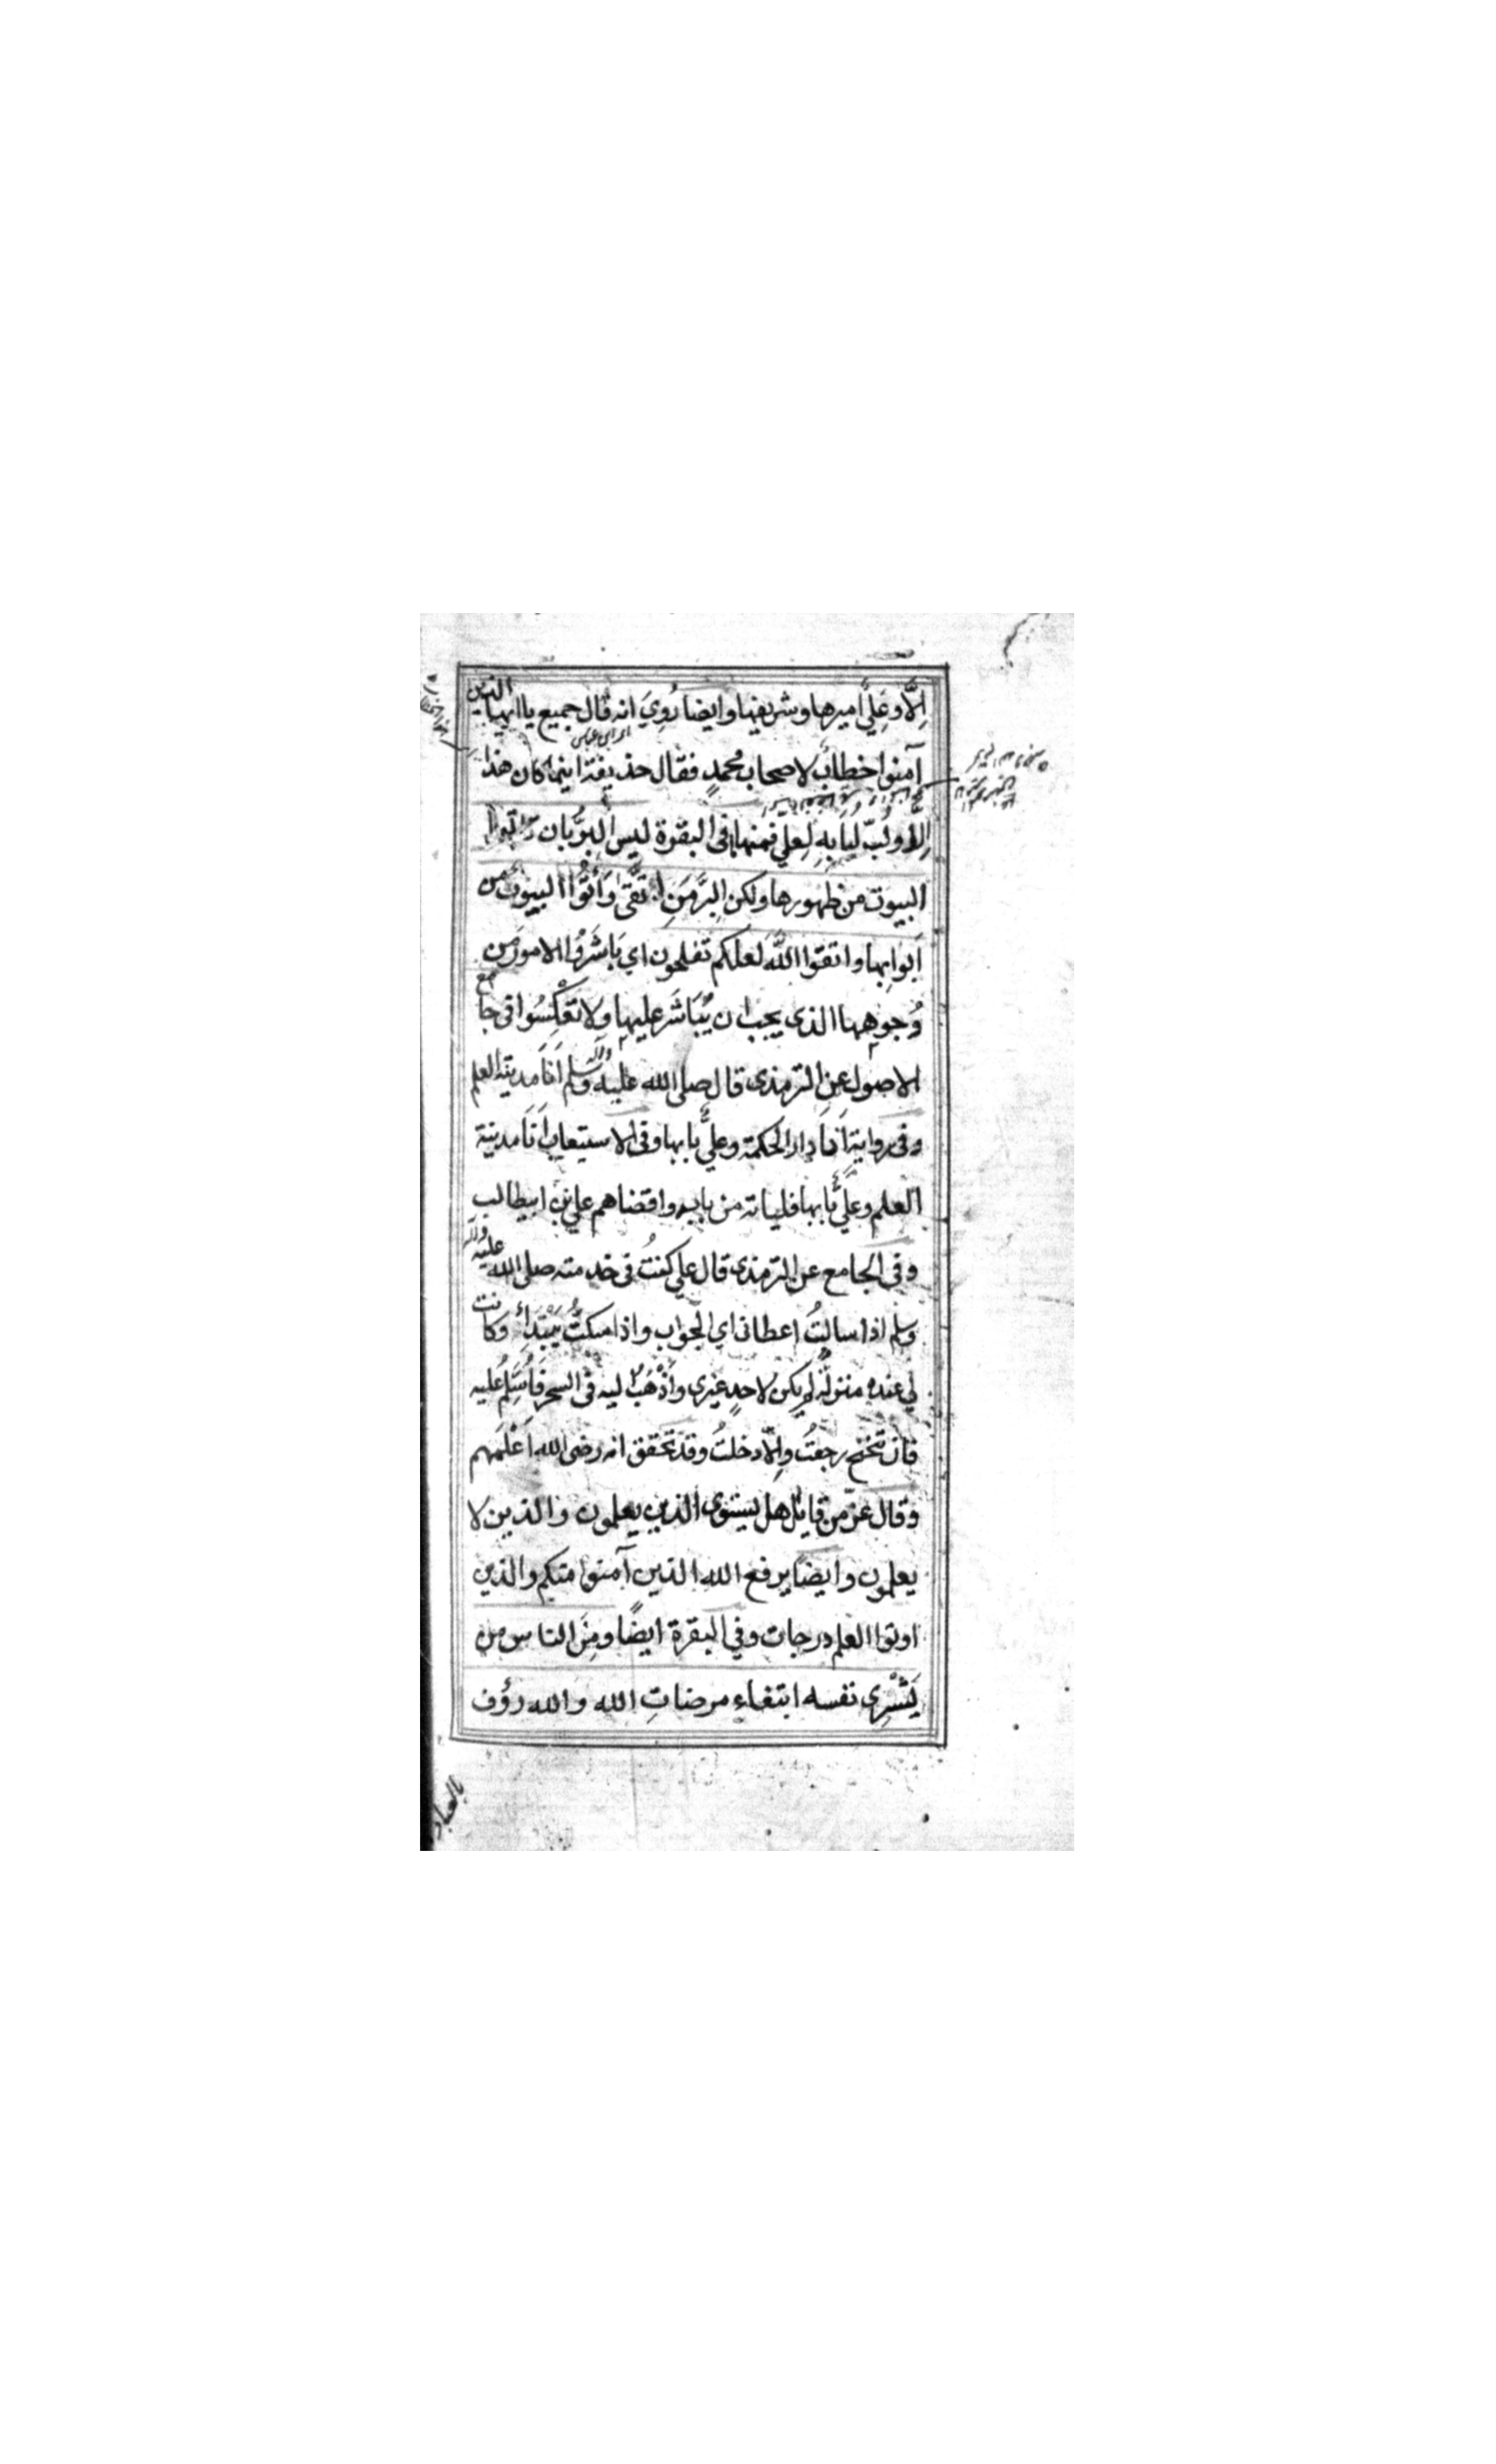 اِلَّا وعَلِيٌّ اميرها وشريفها وايضا رُوِيَ انه قال جميع يا ايها الذين
آمنوا خطابٌ لاصحاب محمدٍ فقال حذيفة اينما كان هذا
لِعَلِيّ فمنها فى البقرة ليس البرُّ بان تاتوا
البيوت من ظهورها ولكن البِرَّ مَنِ اتقى وَأْتُوا البيوتَ من
ابوابها واتقوا اللّٰهَ لعلكم تفلحون اي بَاشَرُوا الامورَ من
وُجوهها الذى يجب ان يُبَاشَرَ عليها ولا تعكِسُوا فى جامع
الاصول عن الترمذى قال صلى الله عليه وآله وسلم اَنَا مدينة العلم
وفى رواية اَنَا دار الحكمة وعليٌّ بابها وفى الاستيعاب اَنَا مدينة
العلم وعَلِيٌّ بابها فلياته من بابه واقضاهم على بن ابيطالب
وفى الجامع عن الترمذى قال على كنتُ فى خدمته صلى الله عليه وآله
وسلم اذا سالتُ اعطانى اي الجواب واذا سكتُّ يَبْتَدِأُ وكانت
لي عنده منزلةٌ لم يكن لاحدٍ غيرى وَاَذْهَبُ اليه فى السحر فَاُسَلِّمُ عليه
فان تنحنح رجعتُ والّا دخلتُ وقد تحقق انه رضى الله اَعْلَمهم
وقال عزّ من قايل هل يستوى الذين يعلمون والذين لا
يعلمون وايضا يرفع الله الذين آمنوا منكم والذين
اوتوا العلم درجات وفي البقرة ايضًا ومِنَ الناس من
يَشْرِى نفسه ابتغاء مرضاتِ الله والله رؤف
بالعباد